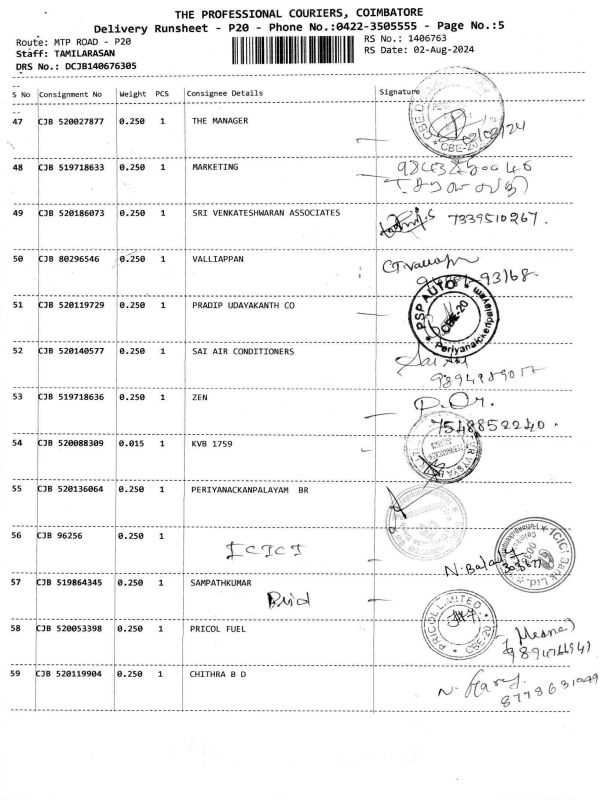 THE PROFESSIONAL COURIERS, COIMBATORE
Delivery Runsheet - P20 - Phone No.:0422-3505555 - Page No.:5
Route: MTP ROAD - P20
RS No.: 1406763
Staff: TAMILARASAN
RS Date: 02-Aug-2024
DRS No.: DCJB140676305
S No Consignment No Weight PCS Consignee Details Signature
47 CJB 520027877 0.250 1 THE MANAGER
CBE-20
02/08/24
48 CJB 519718633 0.250 1 MARKETING
49 CJB 520186073 0.250 1 SRI VENKATESHWARAN ASSOCIATES
7339510267.
50 CJB 80296546 0.250 1 VALLIAPPAN
51 CJB 520119729 0.250 1 PRADIP UDAYAKANTH CO
PSP AUTO CBE-20 Periyanaickenpalayam
52 CJB 520140577 0.250 1 SAI AIR CONDITIONERS
53 CJB 519718636 0.250 1 ZEN
7548852240.
54 CJB 520088309 0.015 1 KVB 1759
55 CJB 520136064 0.250 1 PERIYANACKANPALAYAM BR
56 CJB 96256 0.250 1
ICICI
ICICI Bank Ltd.
N. Balaji
57 CJB 519864345 0.250 1 SAMPATHKUMAR
58 CJB 520053398 0.250 1 PRICOL FUEL
PRICOL LIMITED CBE-20
59 CJB 520119904 0.250 1 CHITHRA B D